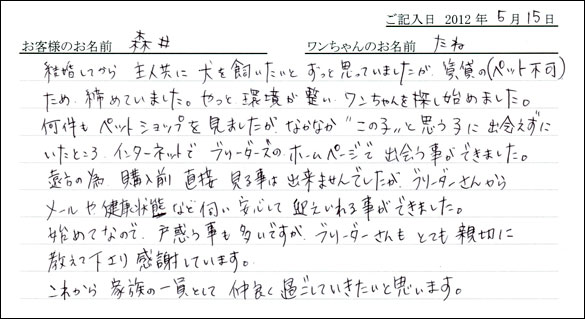 ご記入日 2012年 5月 15日
お客様のお名前 森井 ワンちゃんのお名前 たね
結婚してから 主人共に 犬を飼いたいと ずっと思っていましたが、賃貸の(ペット不可)
ため 締めていました。やっと 環境が 整い ワンちゃんを探し始めました。
何件も ペットショップを 見ましたが、なかなか "この子"と思う子に 出会えずに
いたところ、インターネットで ブリーダーズのホームページで 出会う事ができました。
遠方の為 購入前 直接 見る事は 出来ませんでしたが、ブリーダーさんから
メールや健康状態など伺い 安心して 迎えいれる事ができました。
始めてなので、戸惑う事も多いですが、ブリーダーさんも とても 親切に
教えて下さり 感謝しています。
これから 家族の一員として 仲良く 過ごしていきたいと思います。